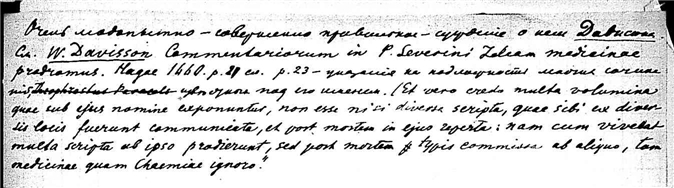 Очень любопытно – совершенно правильное – суждение о нем Дависсона
См. W. Davisson Commentariorum in P. Severini Ideam medicinae
prodromus. Hagae 1660. p. 21 сл. p. 23 – указание на подложность многих сочине
ний, Theophrastus Paracels под его именем. (Et vero credo multa volumina
quae sub ejus nomine exponuntur, non esse nisi diversa scripta, quae sibi ex diver
sis locis fuerunt communicata, et post mortem in ejus reperta: nam cum vivebat
multa scripta ab ipso prodierunt, sed post mortem typis commissa ab aliquo, tam
medicinae quam Chaemiae ignoro."